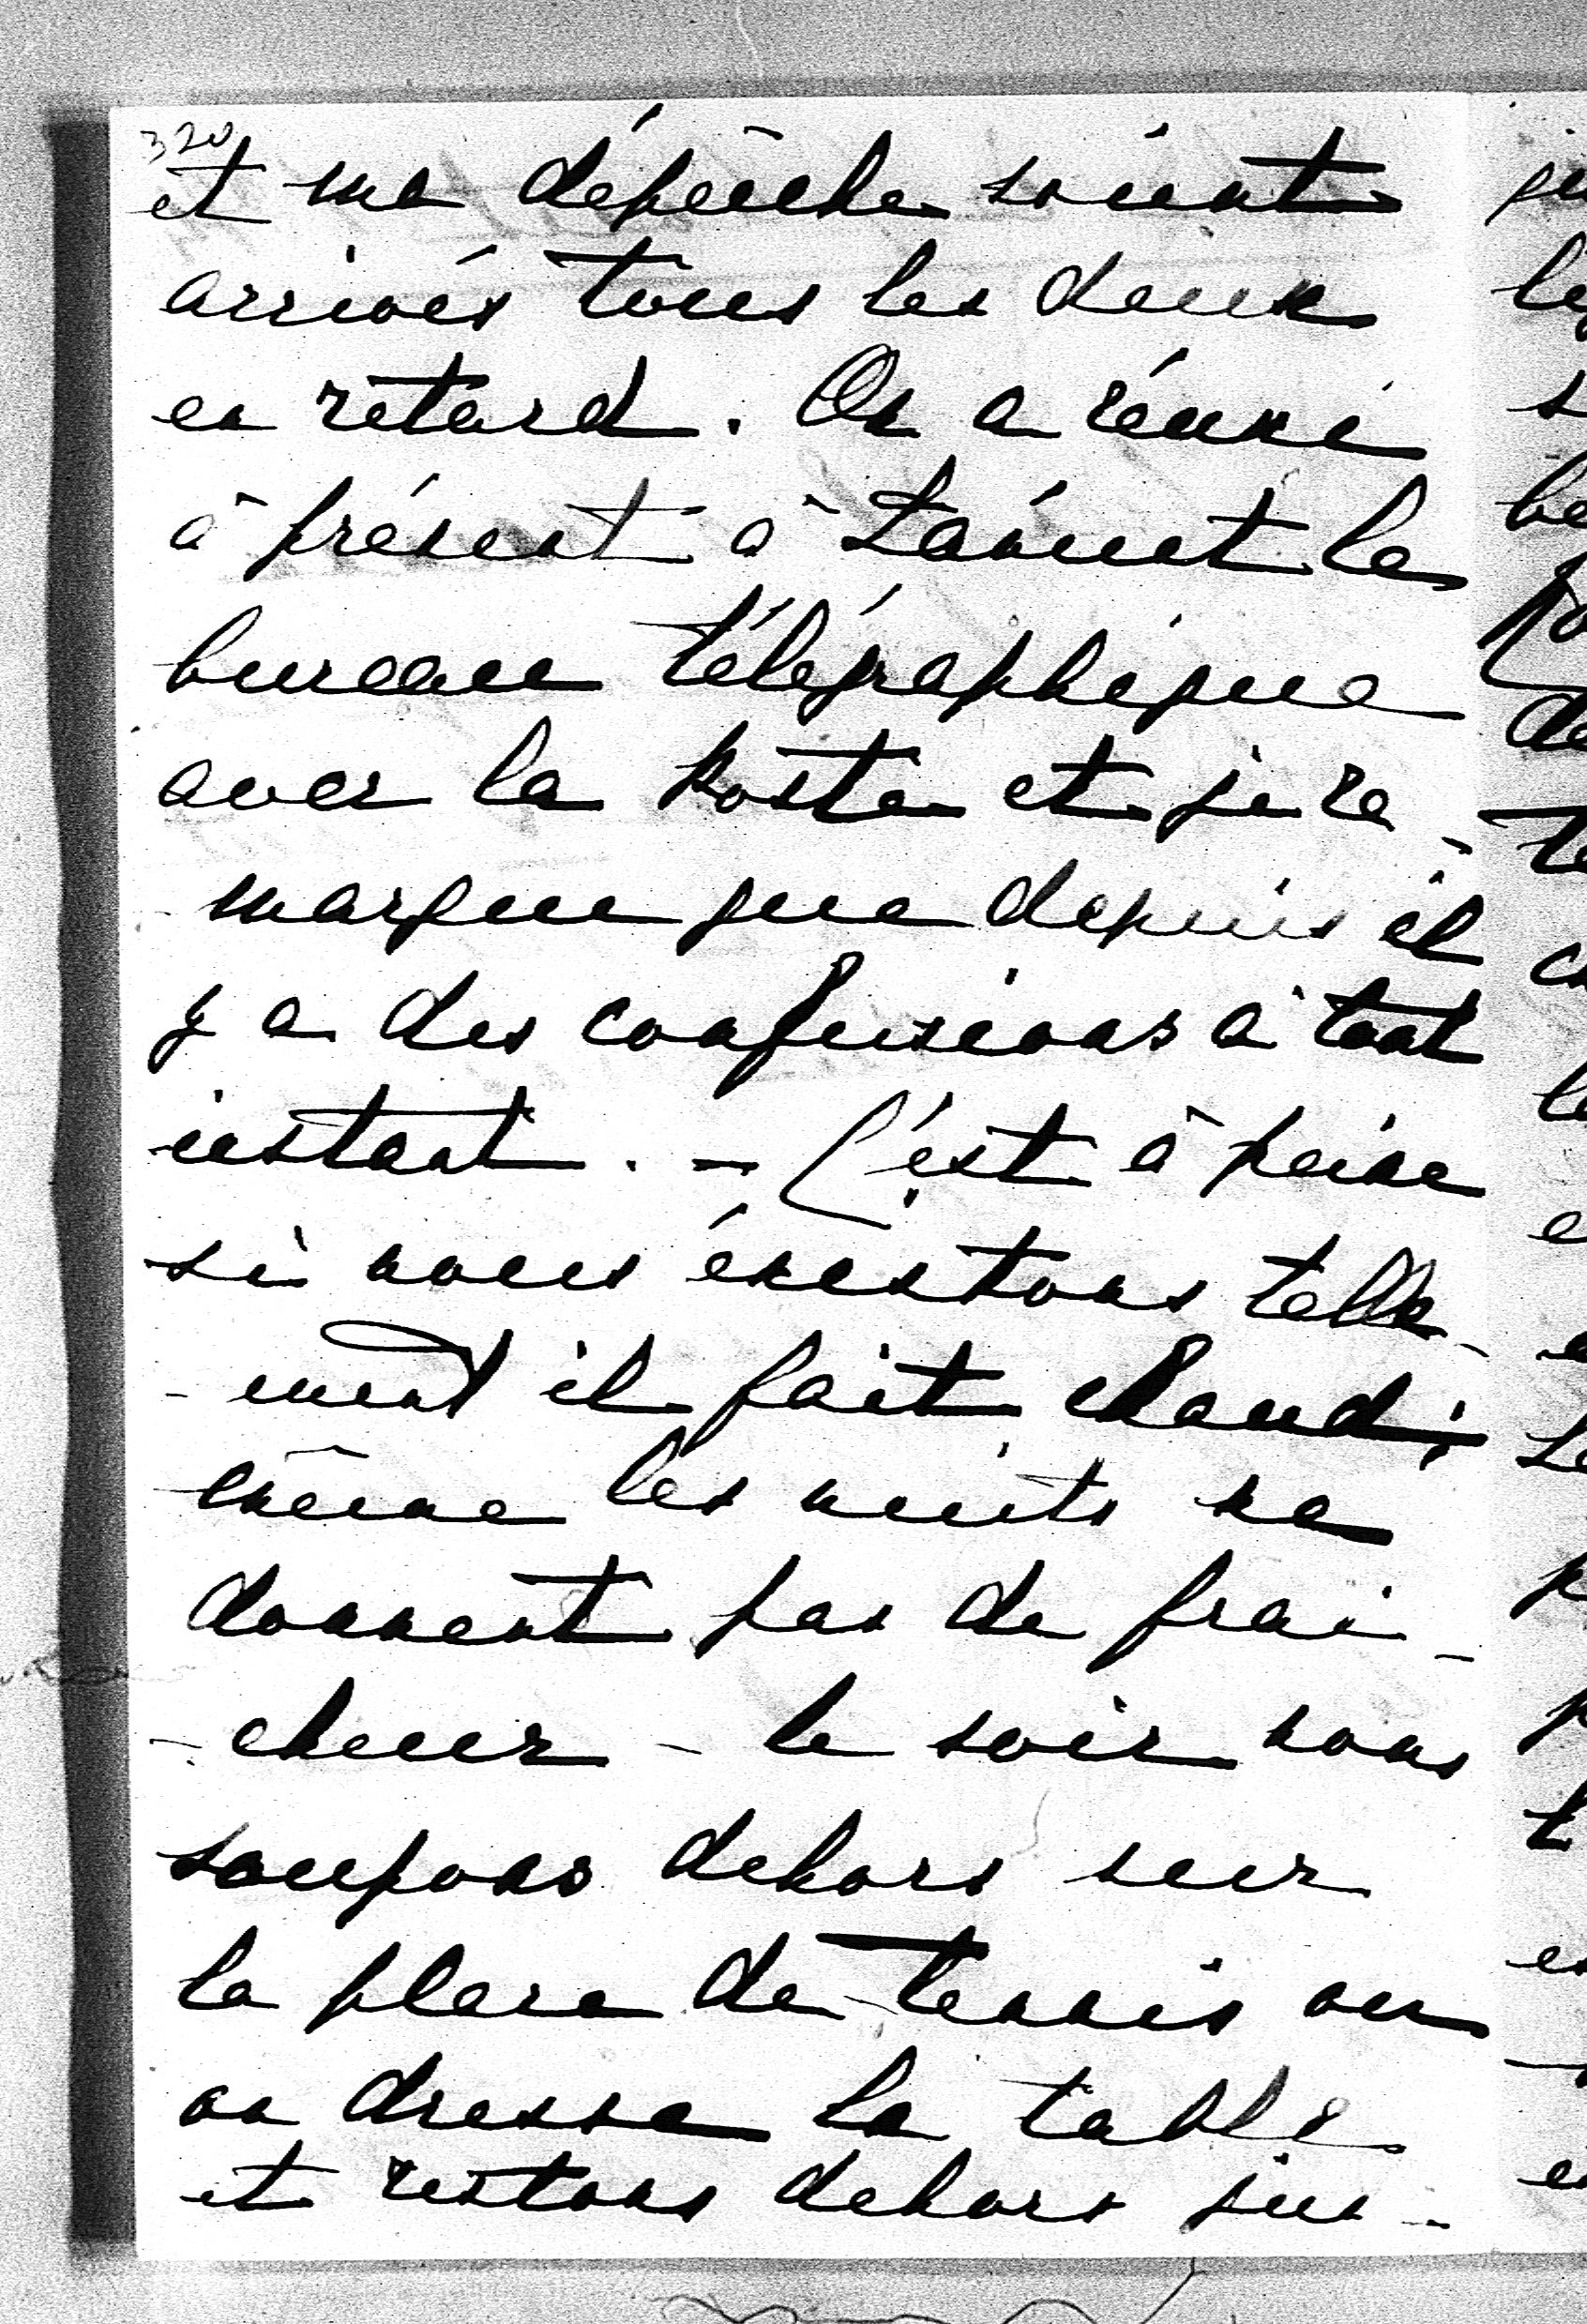 320
et ma dépêche soient
arrivés tous les deux
en retard. On a réuni
à présent à Lannet le
bureau télégraphique
avec la poste et je re-
marque que depuis il
y a des confusions à tout
instant. - C'est à peine
si nous existons telle-
-ment il fait chaud;
même les nuits ne
donnent pas de frai-
-cheur - le soir nous
soupons dehors sur
la place de tennis ou
on dresse la table
et restons dehors jus-